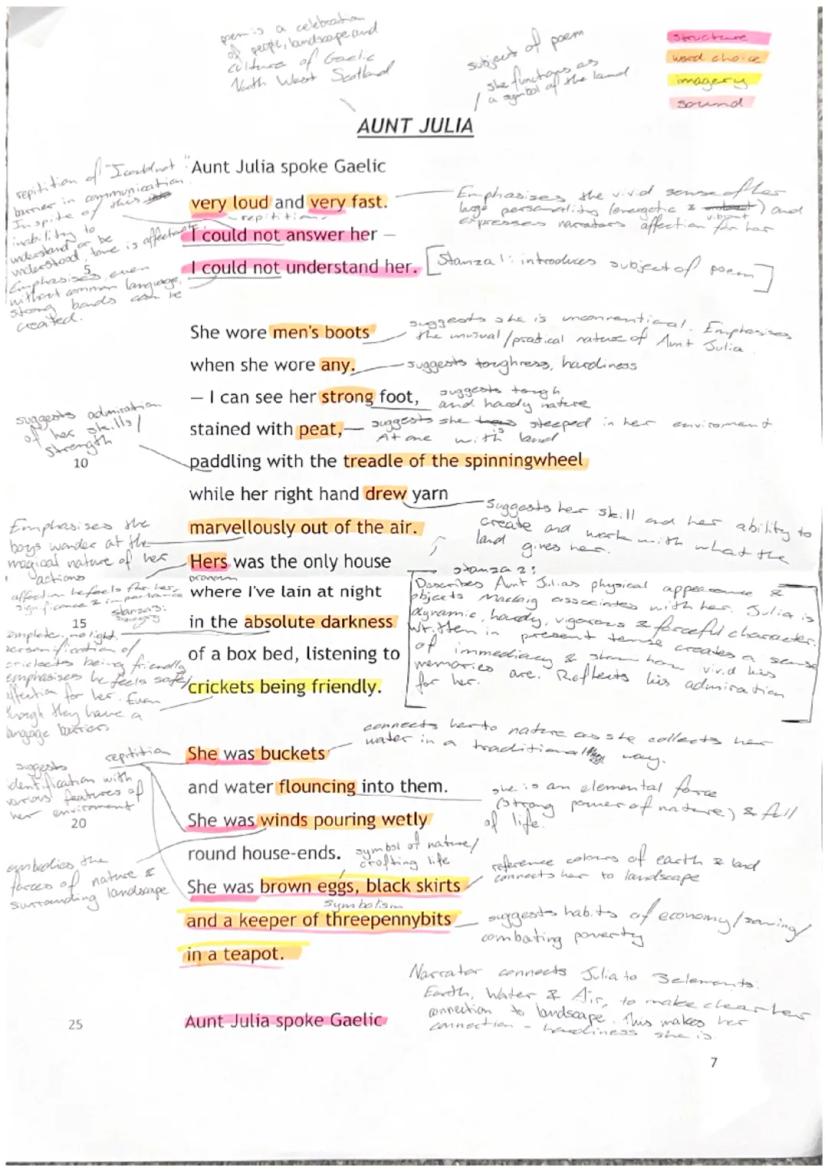 poem is a celebration
of people, landscape and
culture of Gaelic
North West Scotland
subject of poem
she functions as
a symbol of the land
structure
word choice
imagery
sound
AUNT JULIA
repitition of "I could not"
barrier in communication.
In spite of this
inability to
understand or be
understood, love is affectionate
Emphasises even
without common language,
strong bonds can be
created.
Aunt Julia spoke Gaelic
very loud and very fast.
repetition
I could not answer her —
5
I could not understand her.
Emphasises the vivid sense of her
large personality (energetic & vibrant) and
expresses narrators affection for her
[Stanza 1: introduces subject of poem]
She wore men's boots
suggests she is unconventional. Emphasises
the unusual/pratical nature of Aunt Julia
when she wore any.
suggests toughness, hardiness
— I can see her strong foot,
suggests tough
and hardy nature
stained with peat,
suggests she steeped in her enviroment
At one with land
suggests admiration
of her skills/
strength
10
paddling with the treadle of the spinningwheel
while her right hand drew yarn
suggests her skill and her ability to
create and work with what the
land gives her.
marvellously out of the air.
Emphasises the
boys wonder at the
magical nature of her
actions
Hers was the only house
pronoun
affection he feels for her,
significance & importance
where I've lain at night
15
in the absolute darkness
of a box bed, listening to
crickets being friendly.
complete, no light
personification of
crickets being friendly
emphasises he feels safe/
affection for her. Even
though they have a
language barriers
stanza 2:
Describes Aunt Julias physical appearance &
objects Maccaig associates with her. Julia is
dynamic, hardy, vigorous & forceful character.
Written in present tense creates a sense
of immediacy & show how vivid his
memories are. Reflects his admiration
for her.
repitition
She was buckets
connects her to nature as she collects her
water in a traditional way.
and water flouncing into them.
suggests
identification with
various features of
her enviroment
20
She was winds pouring wetly
she is an elemental force
(strong power of nature) & full
of life.
round house-ends.
symbol of nature/
crofting life
embodies the
forces of nature &
surrounding landscape
She was brown eggs, black skirts
reference colours of earth & land
connects her to landscape
symbolism
and a keeper of threepennybits
suggests habits of economy/saving/
combating poverty
in a teapot.
Narrator connects Julia to 3 elements:
Earth, Water & Air, to make clear her
connection to landscape. This makes her
connection - hardiness she is.
25
Aunt Julia spoke Gaelic
7